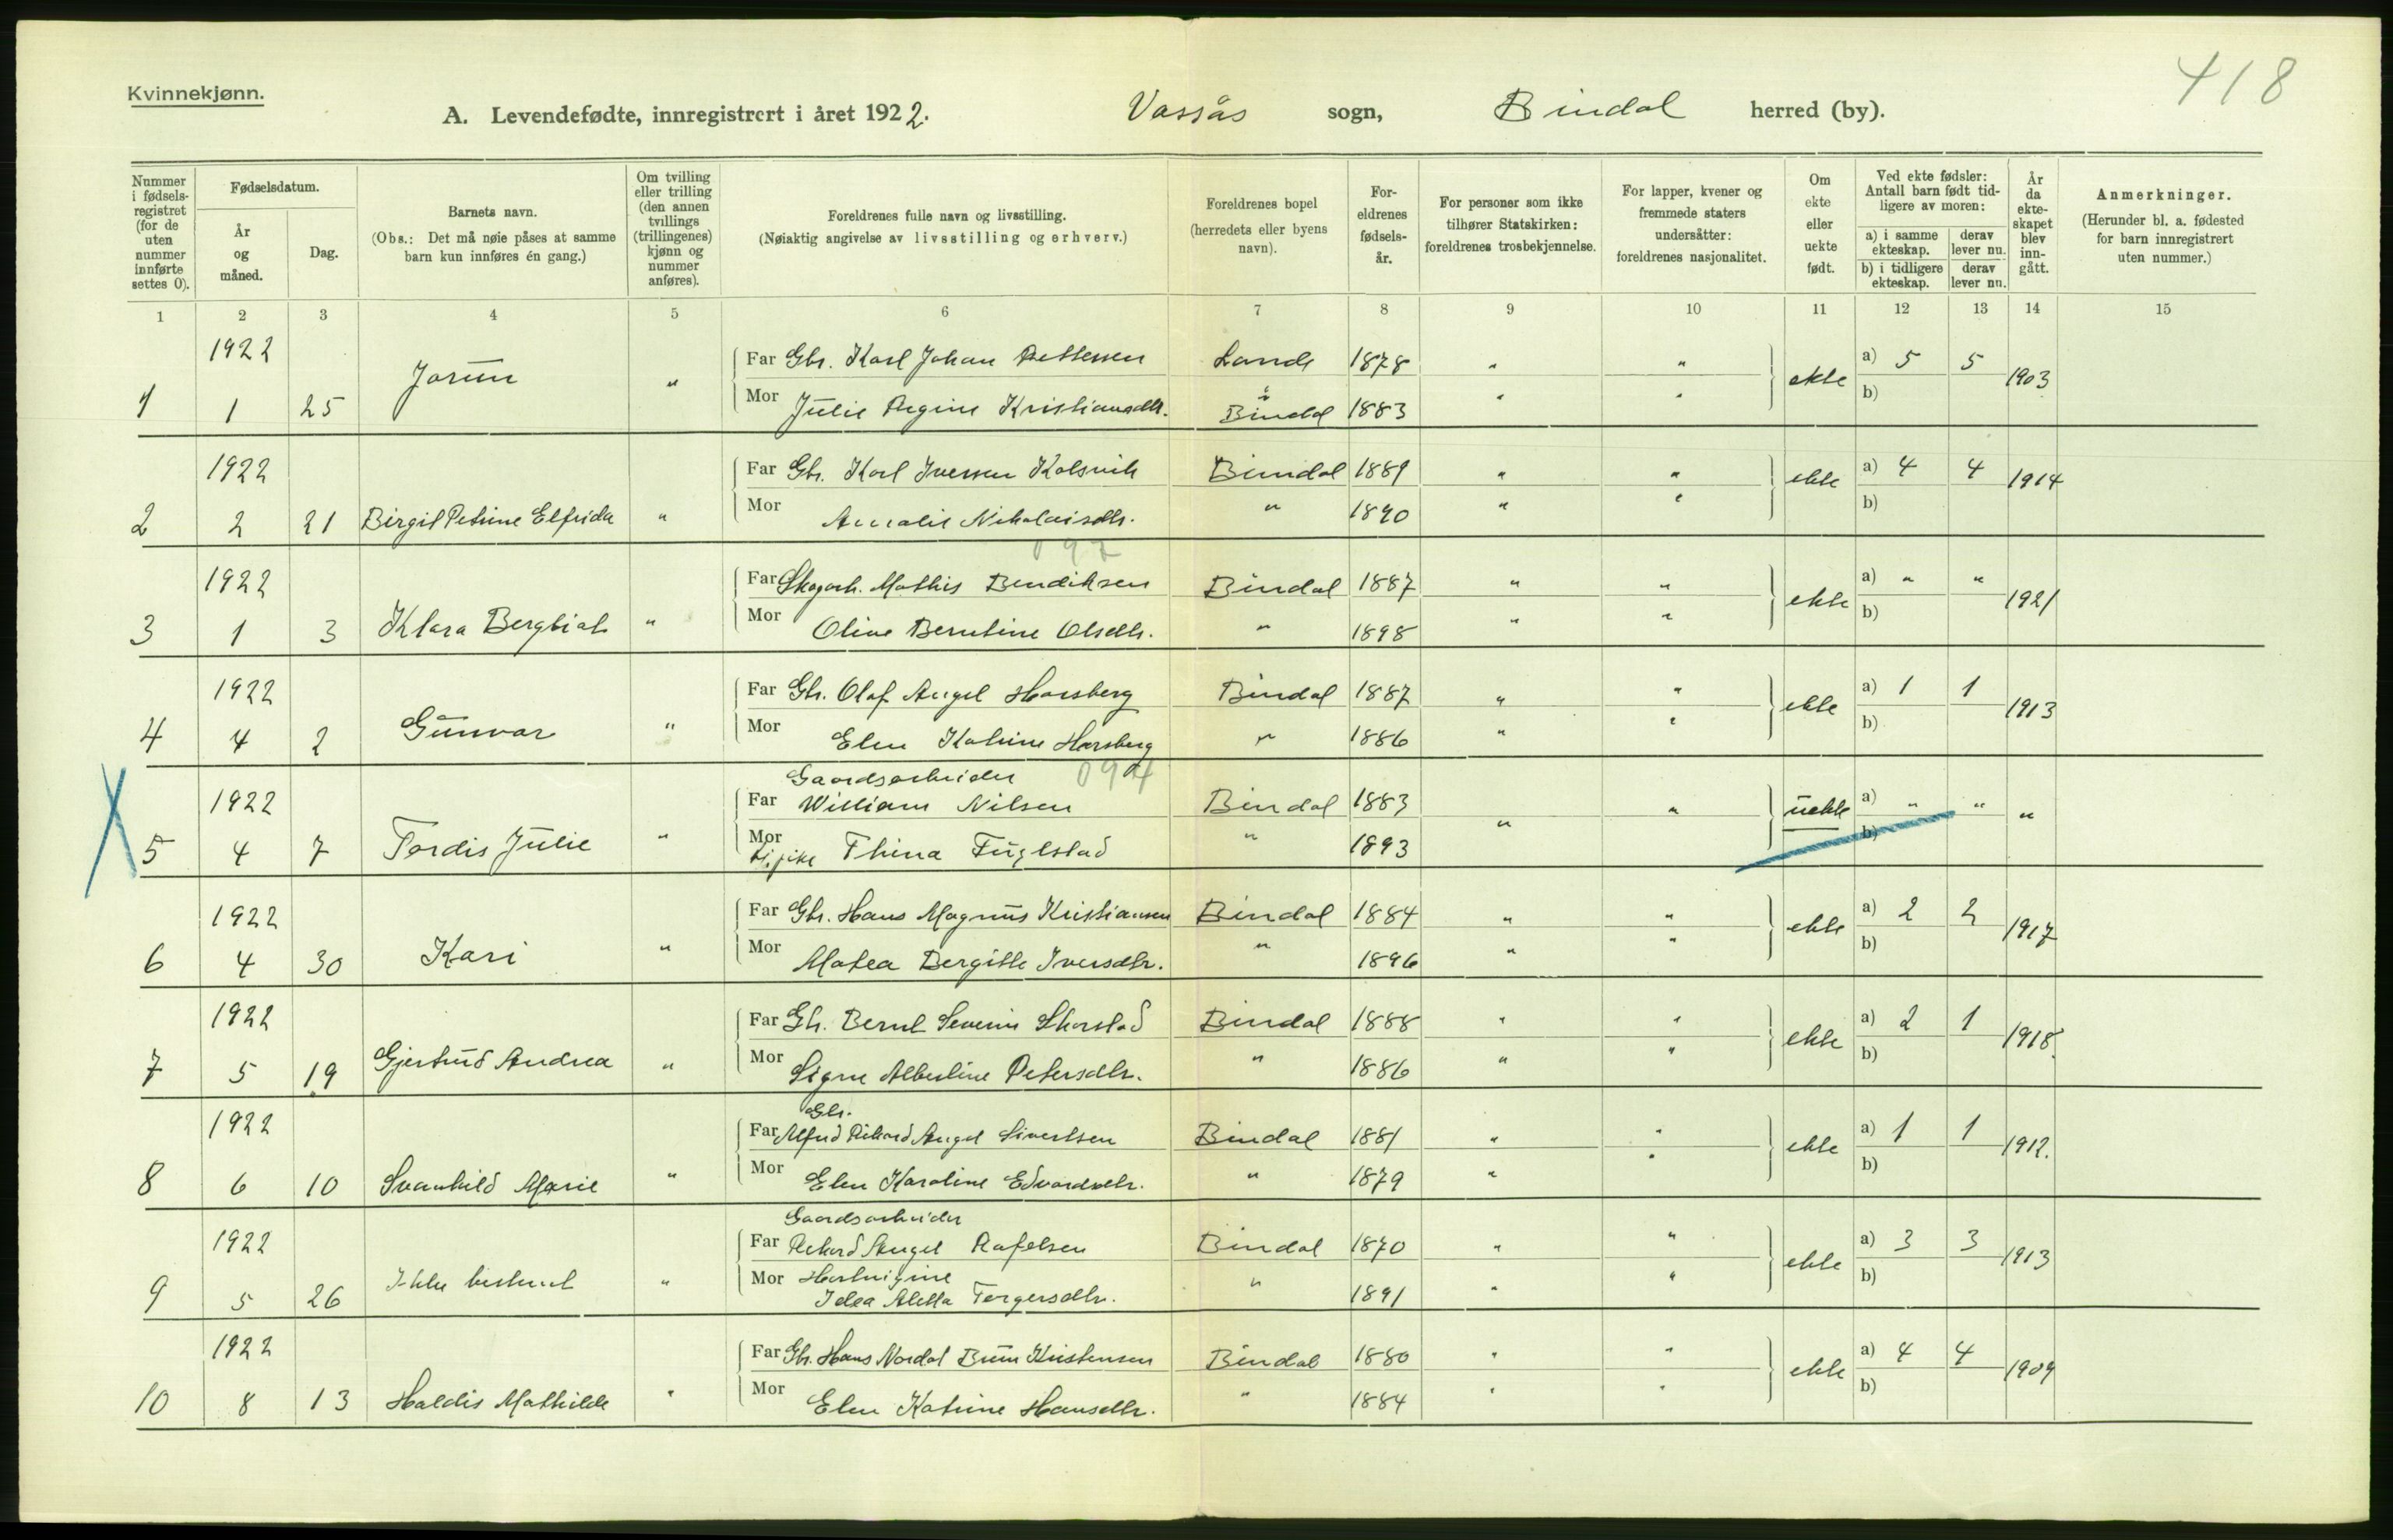 Kvinnekjønn.
418
A. Levendefødte, innregistrert i året 1922.
Vassås sogn, Bindal herred (by).
Nummer i fødselsregistret (for de uten nummer innførte settes 0).
Fødselsdatum.
År og måned.
Dag.
Barnets navn.
(Obs.: Det må nøie påses at samme barn kun innføres én gang.)
Om tvilling eller trilling (den annen tvillings (trillingenes) kjønn og nummer anføres).
Foreldrenes fulle navn og livsstilling.
(Nøiaktig angivelse av livsstilling og erhverv.)
Foreldrenes bopel (herredets eller byens navn).
Foreldrenes fødselsår.
For personer som ikke tilhører Statskirken: foreldrenes trosbekjennelse.
For lapper, kvener og fremmede staters undersåtter: foreldrenes nasjonalitet.
Om ekte eller uekte født.
Ved ekte fødsler: Antall barn født tidligere av moren:
a) i samme ekteskap. derav lever nu.
b) i tidligere ekteskap. derav lever nu.
År da ekteskapet blev inngått.
Anmerkninger.
(Herunder bl. a. fødested for barn innregistrert uten nummer.)
1 2 3 4 5 6 7 8 9 10 11 12 13 14 15
1922
Far Gbr. Karl Johan Pettersen 1878 " " a) 5 5
1 1 25 Jorun " ekte 1903
Mor Julie Regine Kristiansdtr. Bindal 1883 " " b)
1922
Far Gbr. Karl Iversen Kolsvik Bindal 1889 " " a) 4 4
2 2 21 Birgit Petrine Elfrida " ekte 1914
Mor Amalie Nikolaisdtr. " 1890 " " b)
097
1922
Far Skogarb. Mathis Bendiksen Bindal 1887 " " a) " "
3 1 3 Klara Bergliot " ekte 1921
Mor Oline Berntine Olsdtr. " 1898 " " b)
1922
Far Gbr. Olaf Angel Horsberg Bindal 1887 " " a) 1 1
4 4 2 Gunvor " ekte 1913
Mor Elen Katrine Horsberg " 1886 " " b)
Gaardsarbeider 094
1922
Far William Nilsen Bindal 1883 a) " "
5 4 7 Tordis Julie " " " uekte "
Mor tj.pike Thina Fuglstad " 1893 b)
1922
Far Gbr. Hans Magnus Kristiansen Bindal 1884 " " a) 2 2
6 4 30 Kari " ekte 1917
Mor Matea Bergitte Iversdtr. " 1896 " " b)
1922
Far Gb. Bernt Severin Skorstad Bindal 1888 " " a) 2 1
7 5 19 Gjertrud Andrea " ekte 1918.
Mor Signe Albertine Petersdtr. " 1886 " " b)
Gbr.
1922
Far Alfred Rikard Angel Sivertsen Bindal 1881 " " a) 1 1
8 6 10 Svanhild Marie " ekte 1912.
Mor Elen Karoline Edvardsdtr. " 1879 " " b)
Gaardsarbeider
1922
Far Rikard Angel Rafelsen Bindal 1870 " " a) 3 3
9 5 26 Ikke bestemt " ekte 1913
Mor Hartvigine
Idea Aletta Torgersdtr. " 1891 " " b)
1922
Far Gbr. Hans Nordal Brun Kristensen Bindal 1880 " " a) 4 4
10 8 13 Haldis Mathilde " ekte 1909
Mor Elen Katrine Hansdtr. " 1884 " " b)